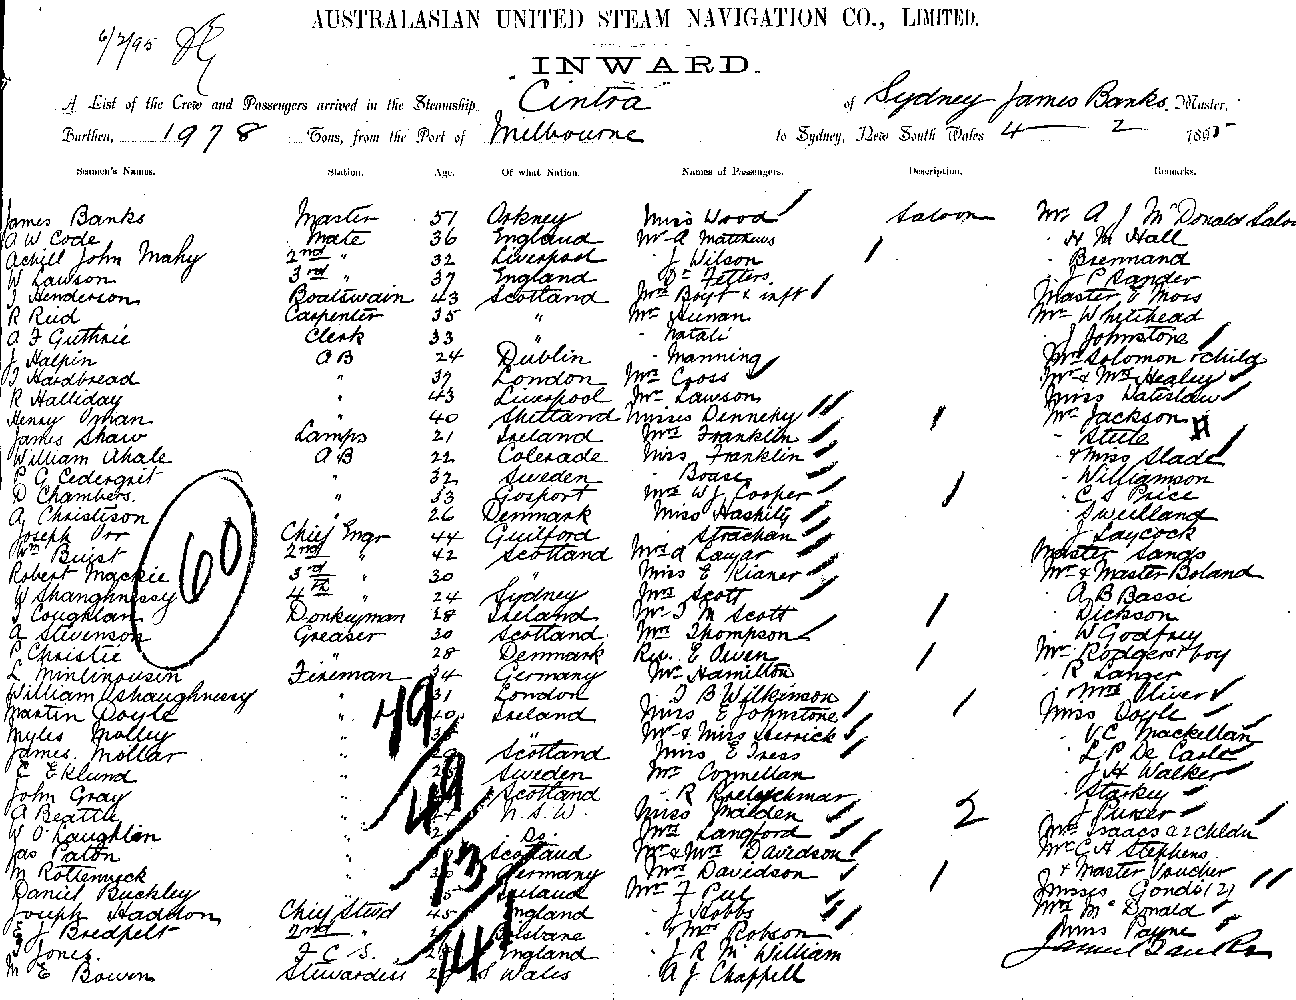 AUSTRALASIAN UNITED STEAM NAVIGATION CO., LIMITED.
6/2/95
INWARD.
A List of the Crew and Passengers arrived in the Steamship Cintra of Sydney James Banks, Master,
Burthen, 1978 Tons, from the Port of Melbourne to Sydney, New South Wales 4 - 2 1895
Seamen's Names. Station. Age. Of what Nation. Names of Passengers. Description. Remarks.
James Banks Master 51 Orkney Miss Wood Saloon Mr A J McDonald
A W Code Mate 36 England Mr A Matthews H M Hall
Achill John Mahy 2nd " 32 Liverpool J Wilson Brennand
W Lawson 3rd " 37 England Dr Fetters J P Rander
J Henderson Boatswain 43 Scotland Mrs Boyt & inft Master E Moss
R Reid Carpenter 35 " Mr Hunan Mr Whitehead
A F Guthrie Clerk 33 " Natali J Johnstone
J Halpin A B 24 Dublin Manning Mrs Solomon & child
J Hardbread " 37 London Mrs Cross Mr & Mrs Healey
R Halliday " 43 Liverpool Mr Lawson Miss
Henry Oman " 40 Shetland Misses Dennehy Mr Jackson
James Shaw Lamps 21 Ireland Mrs Franklin Steele
William Whale A B 22 Colerade Miss Franklin & Miss Slade
P G Cedergrit " 32 Sweden Boase Williamson
D Chambers. " 33 Gosport Mrs W J Cooper C S Price
A Christison " 26 Denmark Miss
Joseph Orr Chief Engr 44 Guilford Strachan J Laycock
Wm Buist 2nd " 42 Scotland Mrs A Master Sands
Robert Mackie 3rd " 30 " Miss E Kianer Mr & Master Boland
W Shanghnessy 4th " 24 Sydney Mrs Scott A B Bassi
J Coughlan Donkeyman 38 Ireland Mr J M Scott Dickson
A Stevenson Greaser 30 Scotland Mrs Thompson W Godfrey
P Christie " 28 Denmark Rev. E Owen Mr Rodgers & boy
L Fireman 34 Germany Mr Hamilton R
William Oshaughnessy " 31 London J B Wilkinson Mrs Oliver
Martin Doyle " 40 Ireland Miss E Johnstone Miss Doyle
Myles Molloy " " Mr & Miss Herrick V.C. Mackellan
James Mollar " Scotland Miss E Tress L. P. De Carle
C Eklund " Sweden Mr Connellan J H Walker
John Gray " Scotland R Starkey
A Beattie " N.S.W. Miss Malden J Purser
W O'Laughlin " Do. Mrs Langford Mrs Isaacs & 2 childn
Jas Paton " Scotland Mr & Mrs Davidson Mr C H Stephens
M " Germany Mrs Davidson & Master Voucher
Daniel Buckley " Ireland Mr F Peel Misses Gondi (2)
Joseph Haddon Chief Stewd 45 England J Hobbs Mrs McDonald
E J Bredfelt 2nd " Brisbane Mrs Robson Miss Payne
J Jones F. C. S. England J R McWilliam James Banks
M E Bowen Stewardess S Wales A J Chappell
60
49
49
13
141
2